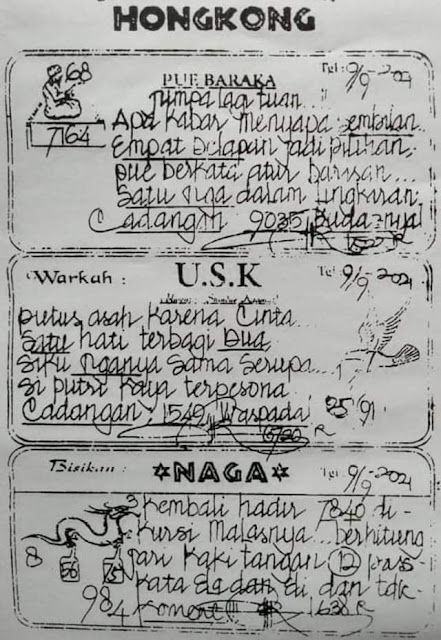 HONGKONG
68
PUE BARAKA
Tgl : 9/9-2021
7164
Jumpa lagi tuan...
Apa kabar menyapa sembilan..
Empat Delapan jadi pilihan,
pue berkata atur barisan...
Satu tiga dalam lingkaran,
Cadangin 9035
Warkah :
U.S.K
Tgl : 9/9-2021
putus asah karena Cinta...
Satu hati terbagi Dua,
Siku tiganya sama serupa...
Si putri Kaya terpesona
Cadangan 1549 Waspada
95 91
Bisikan :
NAGA
Tgl : 9/9-2021
Kembali hadir 7840 di-
Kursi Malasnya... berhitung
jari kaki tangan 12 pras-
8
kata Ela dan Edi dan tdk
984 Koment !!!